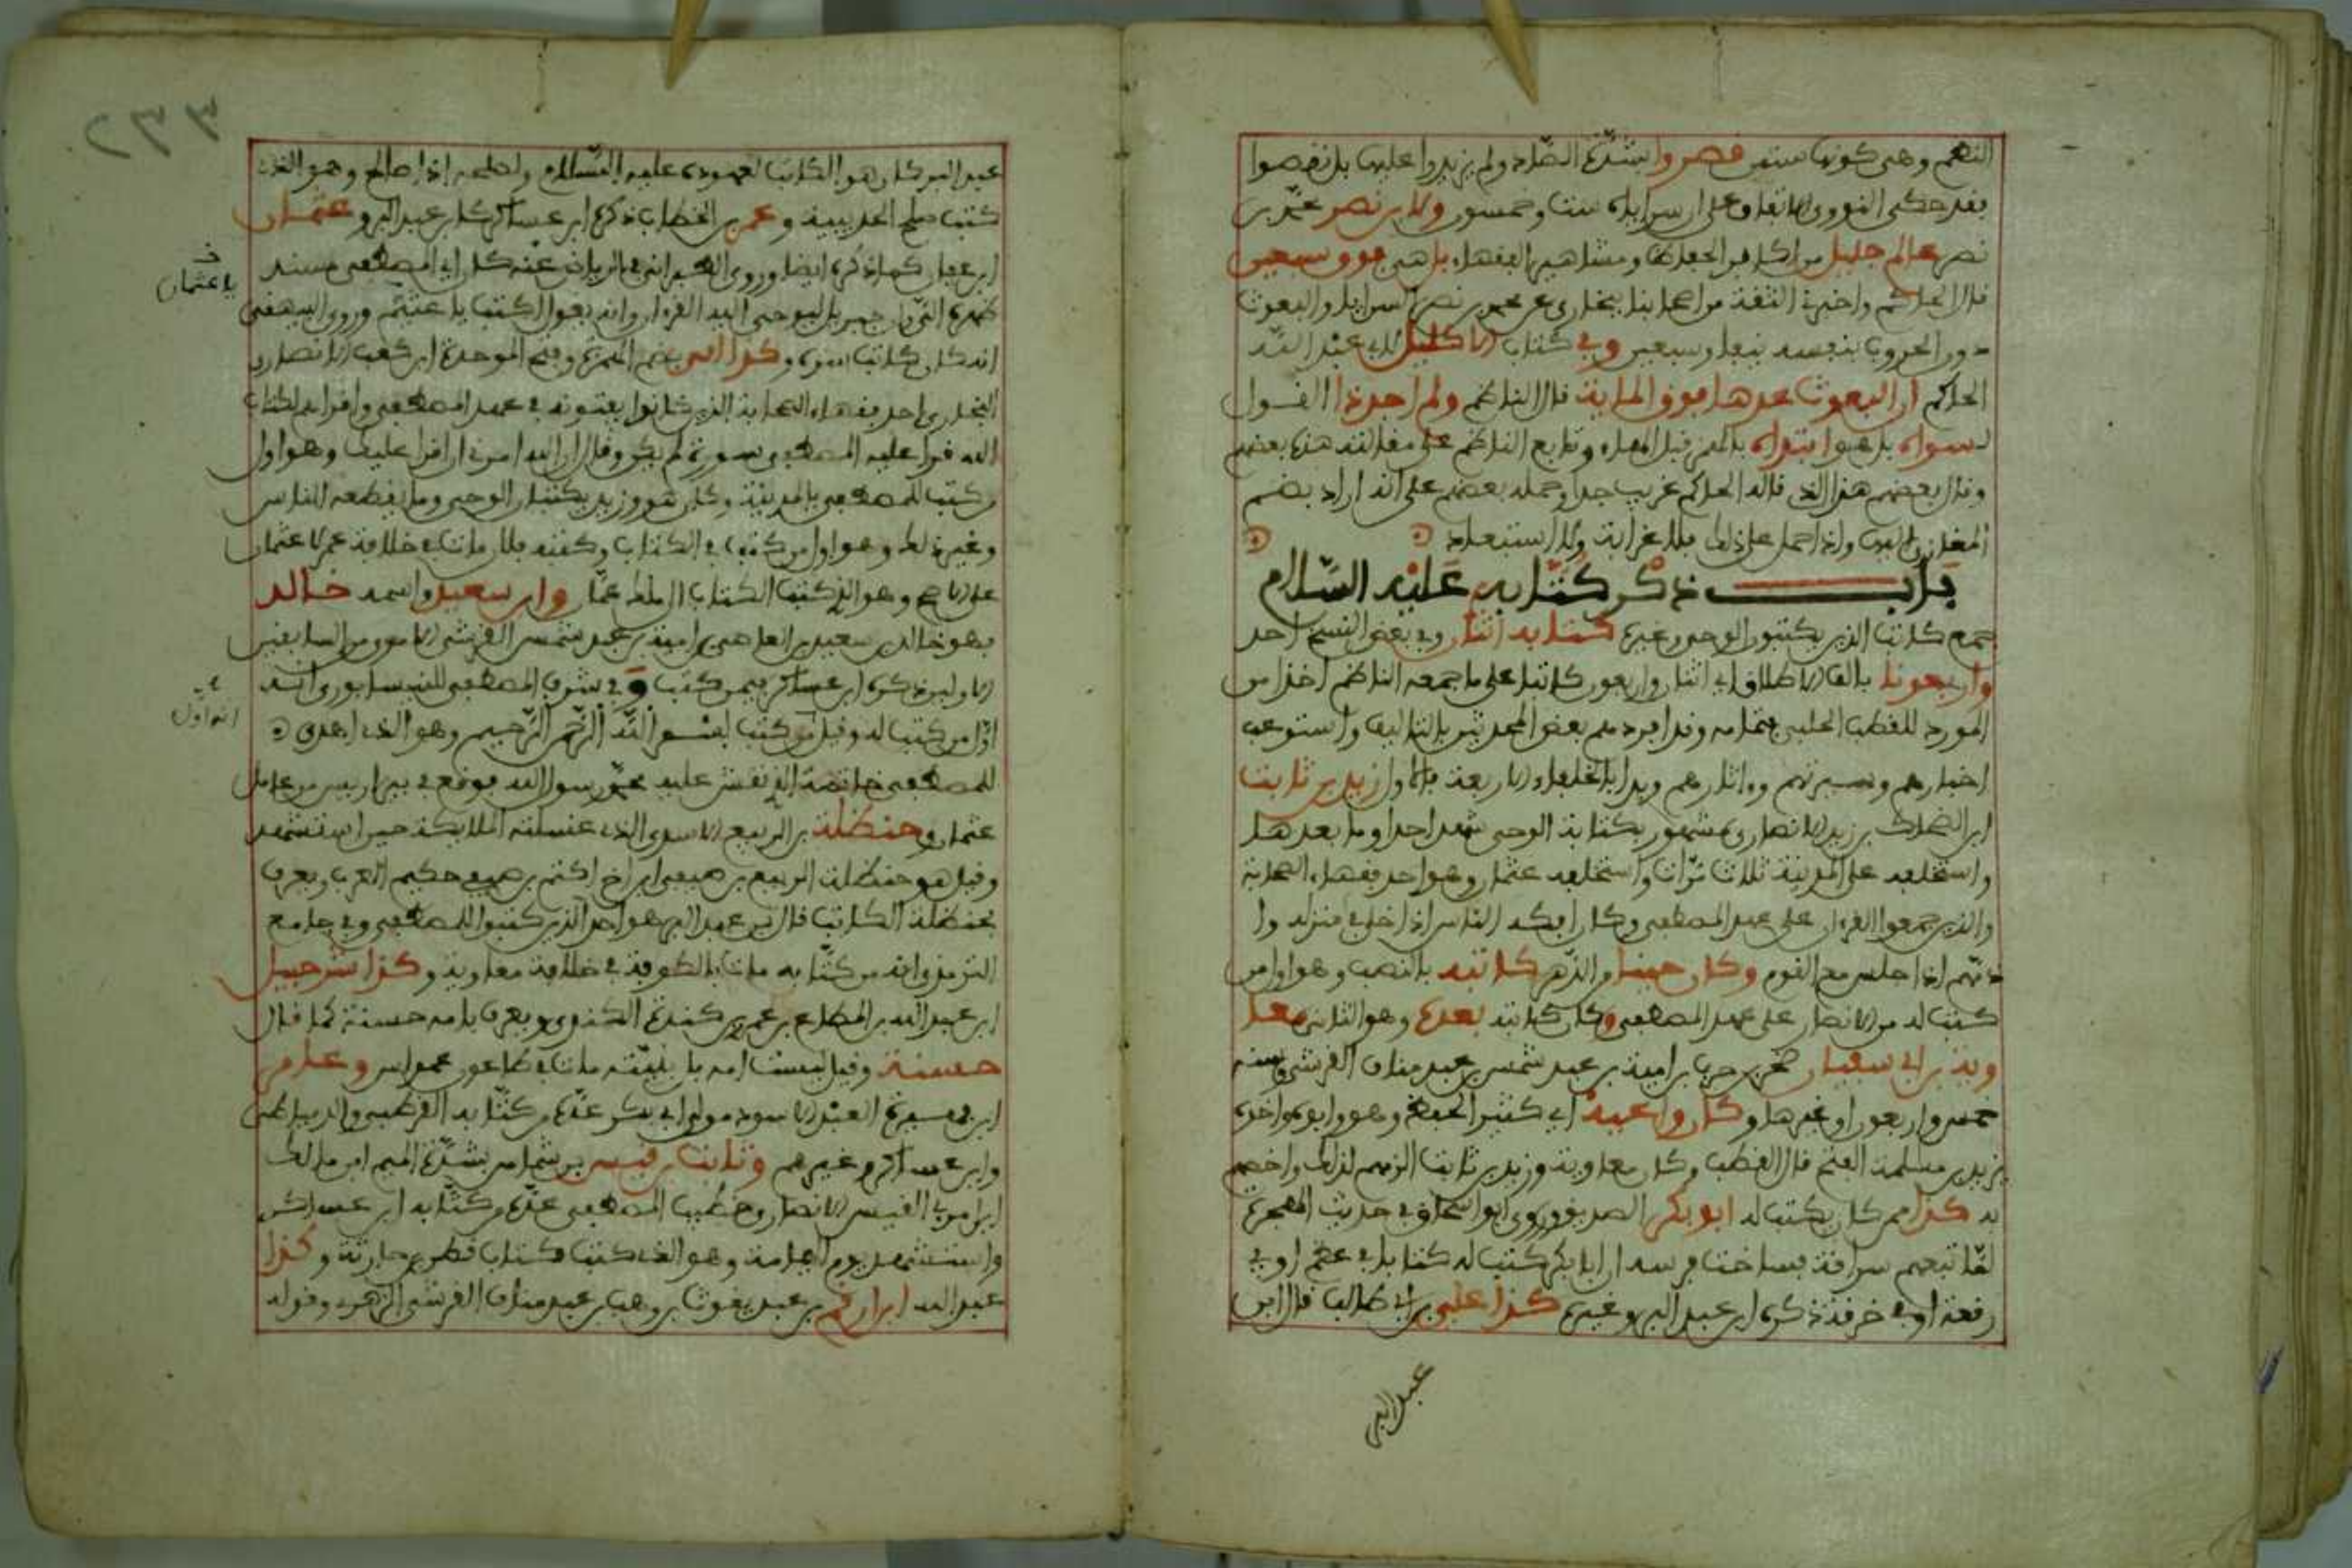 النظم وهي كونها ستين قصروا بشدة الصاد ولم يزيدوا عليها بل نقصوا
فقد حكى النووي الاتفاق على ان سراياه ست وخمسون ولابن نصر محمد بن
نصر عالم جليل من اكابر الحفاظ ومشاهير الفقهاء بل هي فوق سبعين
قال الحاكم واخبرنا الثقة من اصحابنا ببخارى عن محمد بن نصر السرايا والبعوث
دون الحروب بنفسه نيفا وسبعين وفي كتاب الاكليل لابي عبد الله
الحاكم ان البعوث عدها فوق الماية قال الناظم ولم اجد ذا القول
لسواه بل هو ابتداه بالهمز قبل الهاء وتابع الناظم على مقالته هذه بعضهم
وقال بعضهم هذا الذي قاله الحاكم غريب جدا وحمله بعضهم على انه اراد بضم
المغازي اليها واذا حمل على ذلك فلا غرابة ولا استبعاد
باب ذكر كتابه عليه السلام
جمع كاتب الذين يكتبون الوحي وغيره كتابه اثنان وفي بعض النسخ احد
واربعونا بالف الاطلاق اي اثنان واربعون كاتبا على ما جمعه الناظم اخذا من
المورد للقطب الحلبي بتمامه وقد افردهم بعض المحدثين بالتاليف واستوعب
اخبارهم وسيرتهم وءاثارهم وبدا بالخلفاء الاربعة فالاول زيد بن ثابت
ابن الضحاك بن زيد الانصاري مشهور بكتابة الوحي شهد احدا وما بعدها
واستخلفه على المدينة ثلاث مرات واستخلفه عثمان وهو احد فقهاء الصحابة
والذين جمعوا القرءان على عهد المصطفى وكان افكه الناس اذا خلا في منزله وا
ذمتهم اذا جلس مع القوم وكان حينا من الدهر كاتبه بالنصب وهو اول من
كتب له من الانصار على عهد المصطفى وكان كاتبه بعده وهو الثاني معا
وية بن ابي سفيان صخر بن حرب بن امية بن عبد شمس بن عبد مناف القرشي وسنه
خمس واربعون او غيرها وكان واعيه اي كثير الحفظ وهو وابوه واخوه
يزيد من مسلمة الفتح قال القطب وكان معاوية وزيد بن ثابت الزمهم لذلك واخصهم
به كذا ممن كان يكتب له ابو بكر الصديق وروى ابو اسحاق في حديث الهجرة
لما تبعهم سراقة فساخت فرسه ان ابا بكر كتب له كتابا في عظم او في
رقعة او في خرقة ذكره ابن عبد البر وغيره كذا علي بن ابي طالب قال ابن
عبد البر
٢٣٣
عبد البر كان هو الكاتب لعهوده عليه السلام ولصلحه اذا صالح وهو الذي
كتب صلح الحديبية وعمر بن الخطاب ذكره ابن عساكر كابن عبد البر وعثمان
ابن عفان كما ذكره ايضا وروى الطبراني في الرياض عنه كان اي المصطفى مسند
ظهره الي وان جبريل ليوحي اليه القرءان وانه يقول اكتب يا عثيم وروى البيهقي
انه كان كاتب سره وكذا ابي بضم الهمزة وفتح الموحدة ابن كعب الانصاري
النجاري احد فقهاء الصحابة الذين كانوا يفتونه في عهد المصطفى واقراهم لكتاب
الله قرا عليه المصطفى سورة لم يكن وقال ان الله امرني ان اقرا عليك وهو اول
من كتب للمصطفى بالمدينة وكان هو وزيد يكتبان الوحي وما يقطعه الناس
وغير ذلك وهو اول من كتب في الكتاب وكتبه فلان مات في خلافة عمر لا عثمان
على الاصح وهو الذي كتب الكتاب الى ملك عمان وابن سعيد واسمه خالد
فهو خالد بن سعيد بن العاصي بن امية بن عبد شمس القرشي الاموي من السابقين
الاولين ذكره ابن عساكر فيمن كتب وفي شرف المصطفى للنيسابوري انه
اول من كتب له وقيل من كتب بسم الله الرحمن الرحيم وهو الذي اهدى
للمصطفى خاتمه الذي نقش عليه محمد رسول الله فوقع في بير اريس من عامل
عثمان وحنظلة بن الربيع الاسدي الذي غسلته الملايكة حين استشهد
وقيل هو حنظلة الربيع بن صيفي ابن اخ اكثم بن صيفي حكيم العرب ويعرف
بحنظلة الكاتب قال ابن عبد البر هو احد الذين كتبوا للمصطفى وفي جامع
الترمذي انه من كتابه مات بالكوفة في خلافة معاوية وكذا شرحبيل
ابن عبد الله بن المطاع بن عمرو بن كندة الكندي ويعرف بامه حسنة كما قال
حسنة وقيل ليست امه بل تبنته مات في طاعون عمواس وعامر
ابن فهيرة العبد الاسود مولى ابي بكر عده من كتابه القرطبي والدمياطي
وابن عساكر وغيرهم وثابت بن قيس بن شماس بشدة الميم ابن مالك
ابن امرئ القيس الانصاري خطيب المصطفى عده من كتابه ابن عساكر
واستشهد يوم اليمامة وهو الذي كتب كتاب قطن بن حارثة وكذا
عبد الله ابن ارقم بن عبد يغوث بن وهب بن عبد مناف القرشي الزهري وقوله
يا عثمان
انه اول